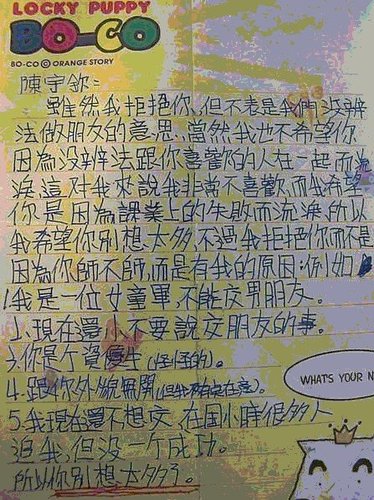 LOCKY PUPPY
BO-CO
BO-CO © ORANGE STORY
陳宇欽:
雖然我拒絕你,但不是我們沒辨
法做朋友的意思,當然我也不希望你
因為沒辨法跟你喜歡的人在一起而流
淚,這對我來說我非常不喜歡,而我希望
你是因為課業上的失敗而流淚,所以
我希望你別想太多,不過我拒絕你而不是
因為你帥不帥,而是有我的原因:例如
1.我是一位女童軍,不能交男朋友。
2.現在還小不要說交朋友的事。
3.你是个資優生(怪怪的)。
4.跟你外貌無關(但我有在意)。
5.我現在還不想交,在國小時很多人
追我,但没一个成功。
所以你別想太多了。
WHAT'S YOUR N